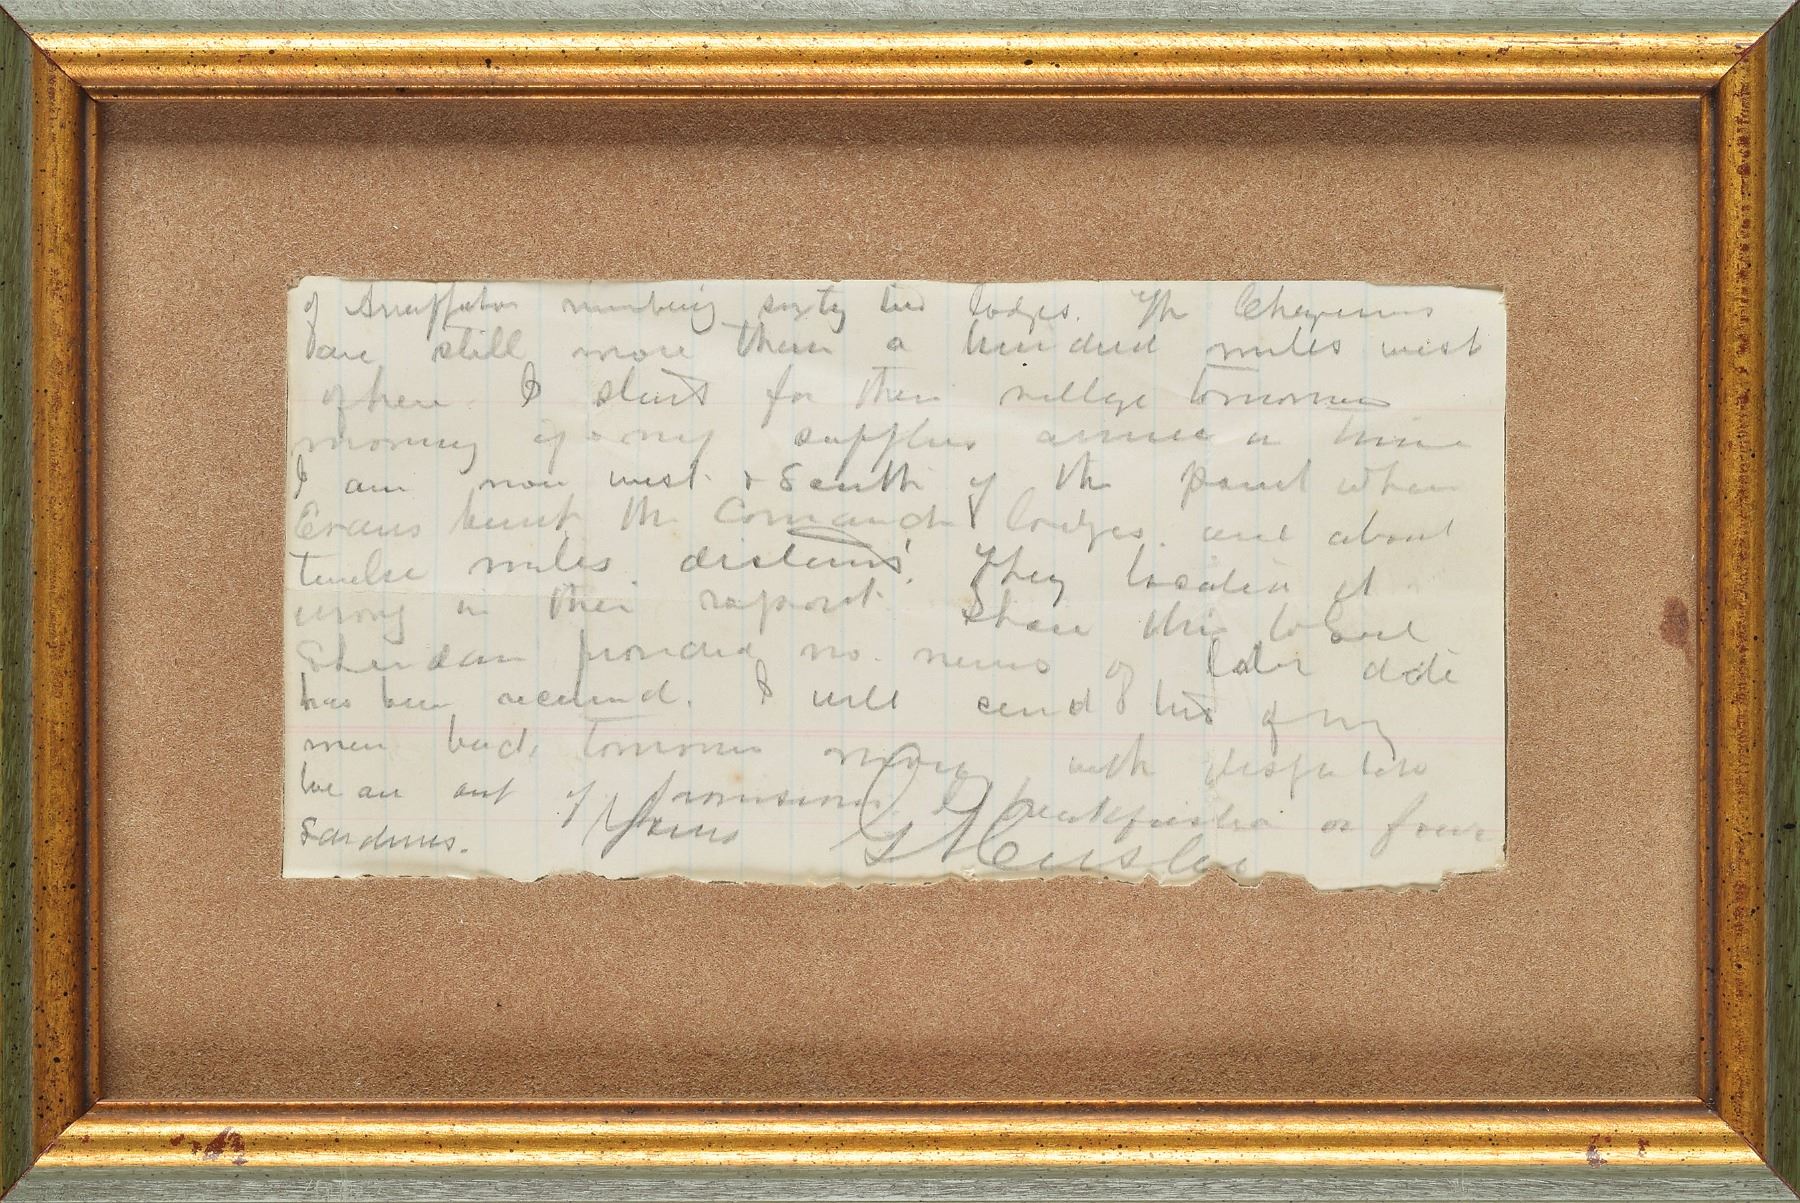 of Arrapahoe numbering sixty two lodges. The Cheyennes
are still more than a hundred miles west
of here I start for their village tomorrow
morning if my supplies arrive in time
I am now west & South of the point where
Evans burnt the Comanche lodges. and about
twelve miles distant. They located it
wrong in their report. Show this to Genl
Sheridan provided no news of later date
has been received. I will send two of my
men back tomorrow with dispatches
We are out of provisions I breakfasted on four
Sardines. Yours G A Custer